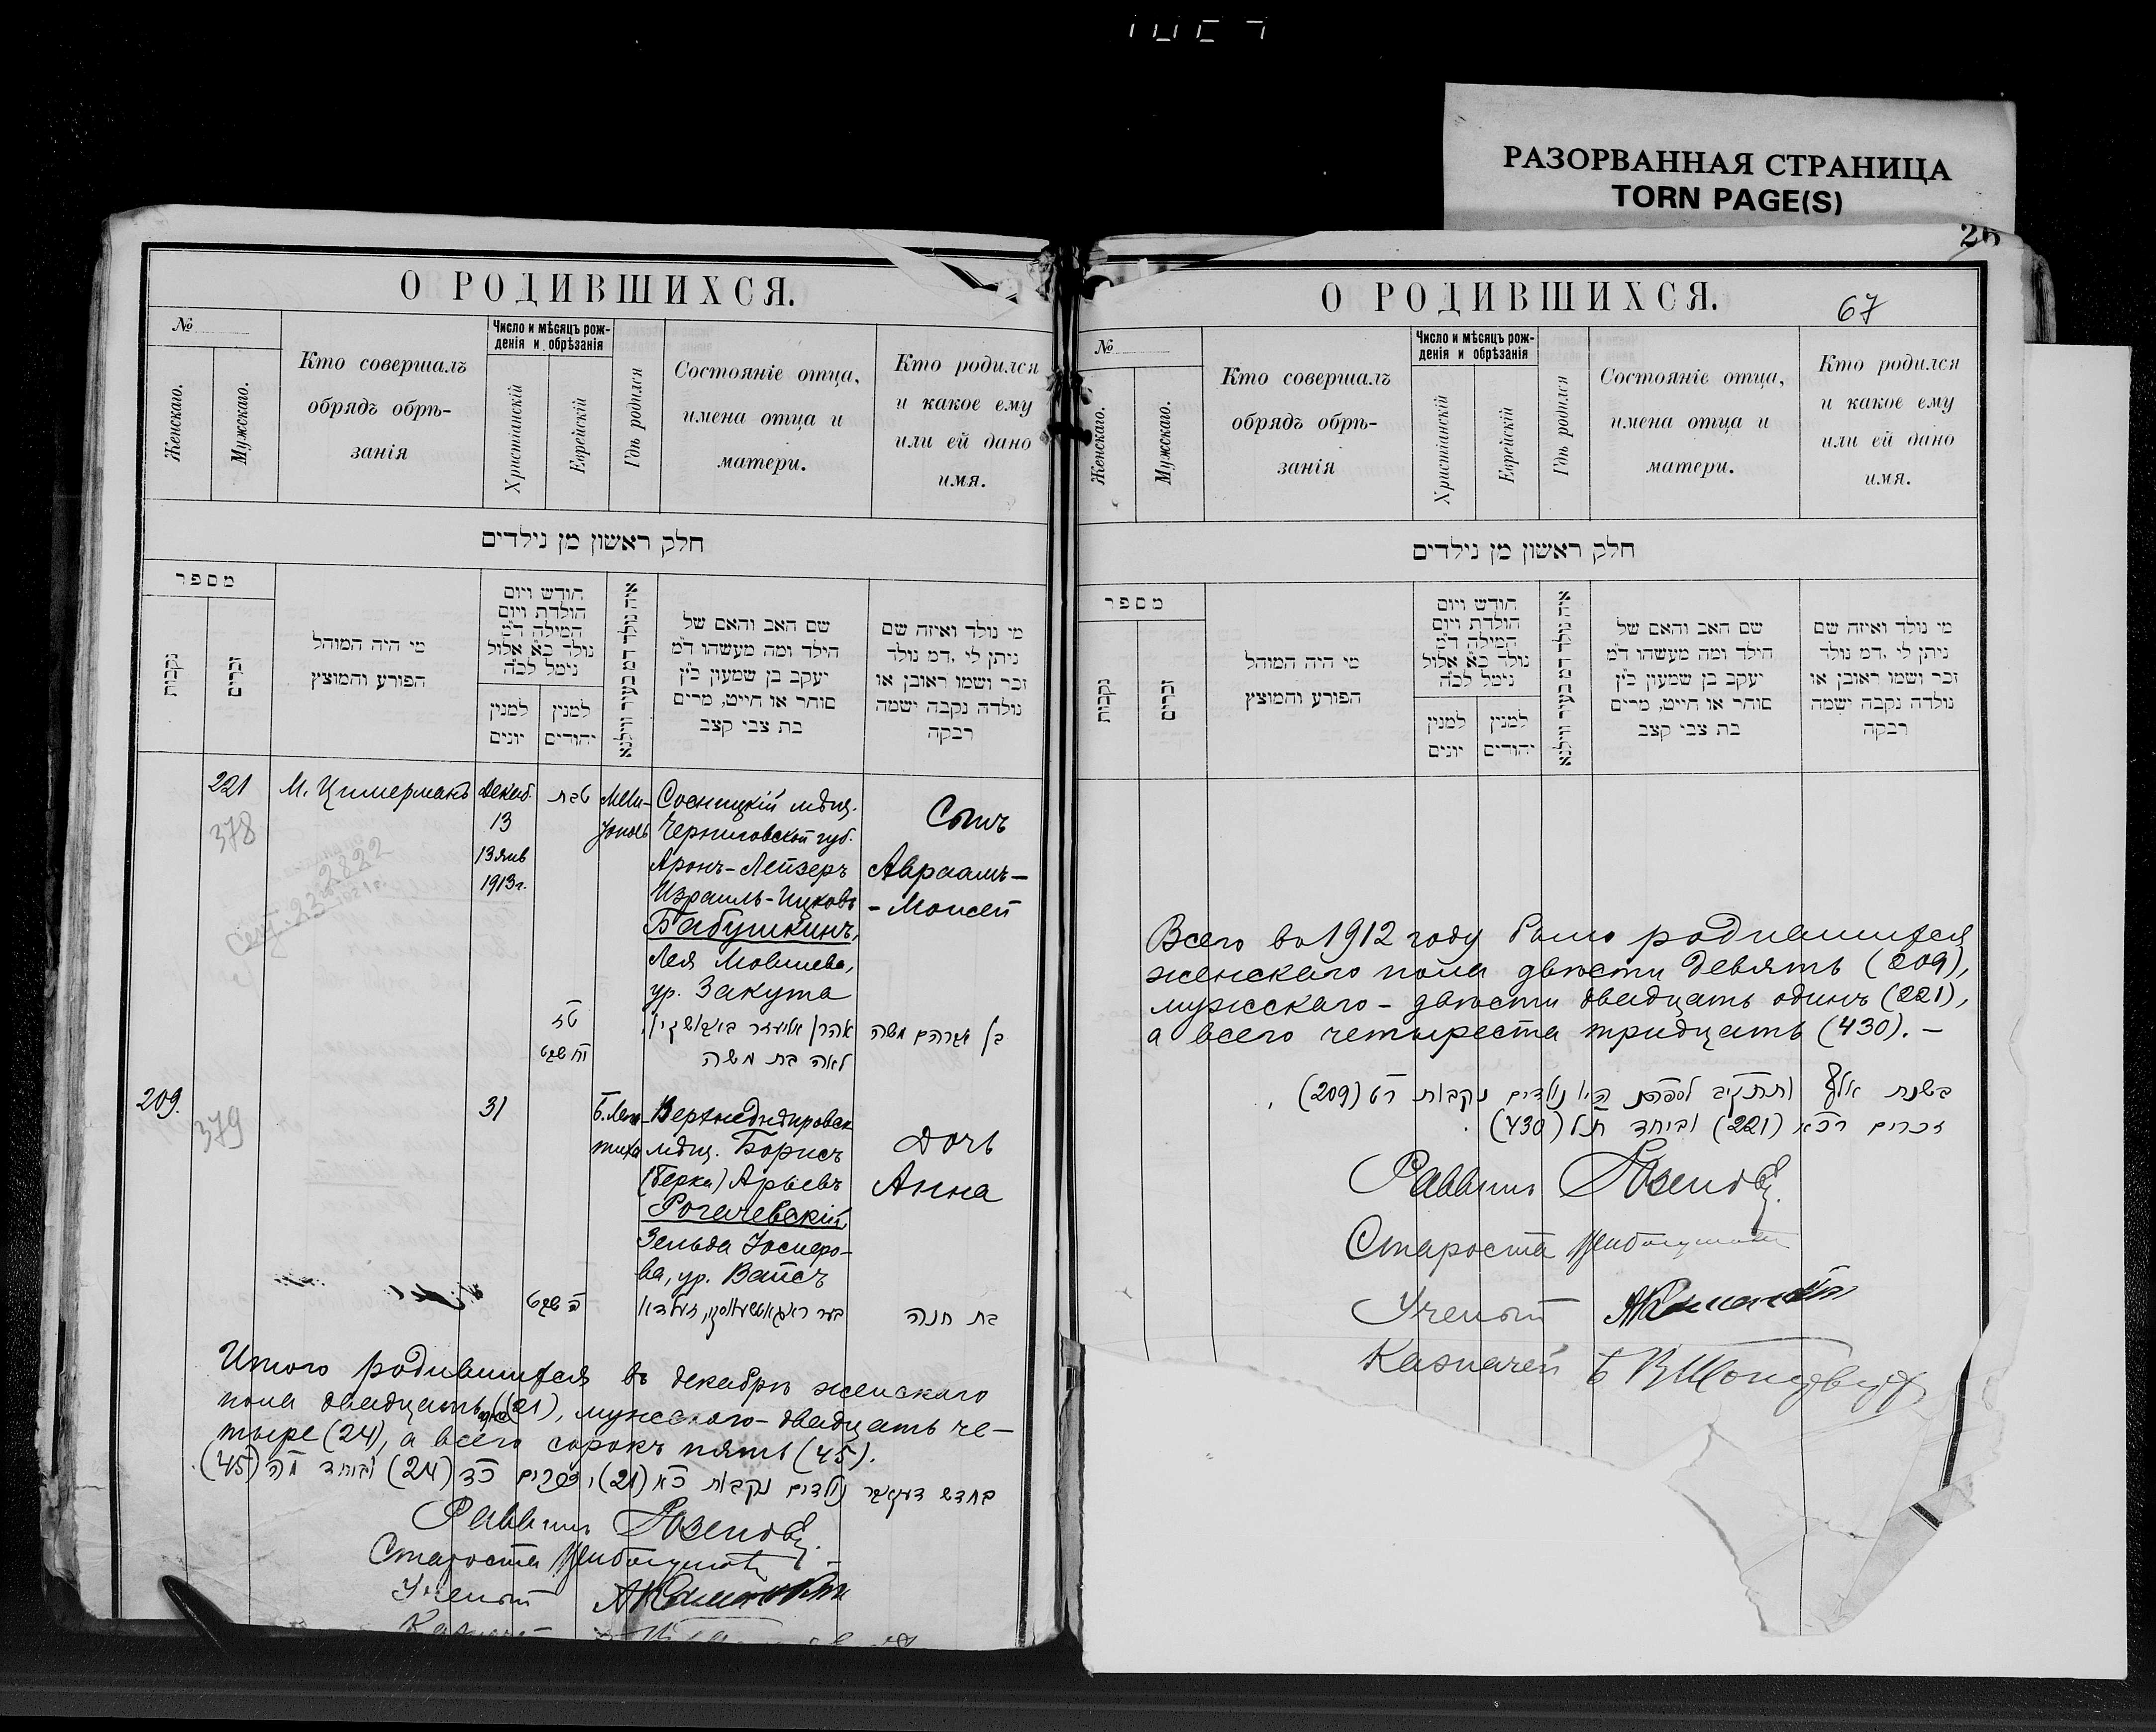 РАЗОРВАННАЯ СТРАНИЦА
TORN PAGE(S)
О РОДИВШИХСЯ.
№
Женскаго.
Мужскаго.
Кто совершалъ
обрядъ обрѣ-
занія
Число и мѣсяцъ рож-
денія и обрѣзанія
Христіанскій
Еврейскій
Гдѣ родился
Состояніе отца,
имена отца и
матери.
Кто родился
и какое ему
или ей дано
имя.
חלק ראשון מן נילדים
מספר
נקבות
זכרים
מי היה המוהל
הפורע והמוצץ
חודש ויום
הולדת ויום
המילה ד"מ
נולד כ"א אלול
נימל לכ"ה
למנין
יונים
למנין
יהודים
שם האב והאם של
הילד ומה מעשהו ד"מ
יעקב בן שמעון כ"ץ
סוחר או חייט, מרים
בת צבי קצב
מי נולד ואיזה שם
ניתן לי .דמ נולד
זכר ושמו ראובן או
נולדה נקבה ישמה
רבקה
221
378
М. Цимерманъ
Декаб.
13
13 янв
1913 г.
טבת
Мели-
тополь
Сосницкій мѣщ.
Черниговской губ.
Аронъ-Лейзеръ
Израиль-Ицковъ
Бабушкинъ,
Лея Мовшева,
ур. Закута
Сынъ
Авраамъ-
-Моисей
אהרן אליעזר באבושקין
לאה בת משה
בן אברהם משה
209.
379
31
Б. Лепа-
тиха
Верхнеднѣпровск
мѣщ. Борисъ
(Берка) Арьевъ
Рогачевскій,
ва, ур. Вайсъ
Дочь
Анна
ב שבט
בת חנה
Итого родившихся въ декабрѣ женскаго
пола двадцать одна (21), мужскаго - двадцать че-
тыре (24), а всего сорокъ пять (45).
בחדש דעקאבר נולדים נקבות כא (21), זכרים כד (24) וביחד מה (45).
Раввинъ
Староста
Ученый
О РОДИВШИХСЯ.
26
67
№
Женскаго.
Мужскаго.
Кто совершалъ
обрядъ обрѣ-
занія
Число и мѣсяцъ рож-
денія и обрѣзанія
Христіанскій
Еврейскій
Гдѣ родился
Состояніе отца,
имена отца и
матери.
Кто родился
и какое ему
или ей дано
имя.
חלק ראשון מן נילדים
מספר
נקבות
זכרים
מי היה המוהל
הפורע והמוצץ
חודש ויום
הולדת ויום
המילה ד"מ
נולד כ"א אלול
נימל לכ"ה
למנין
יונים
למנין
יהודים
שם האב והאם של
הילד ומה מעשהו ד"מ
יעקב בן שמעון כ"ץ
סוחר או חייט, מרים
בת צבי קצב
מי נולד ואיזה שם
ניתן לי .דמ נולד
זכר ושמו ראובן או
נולדה נקבה ישמה
רבקה
Всего во 1912 году было родившихся
женскаго пола двѣсти девять (209),
мужскаго - двѣсти двадцать одинъ (221),
а всего четыреста тридцать (430). -
בשנת אלף תתקיב למספרם היו נולדים נקבות רט (209),
זכרים רכא (221) וביחד תל (430).
Раввинъ
Староста
Ученый
Казначей